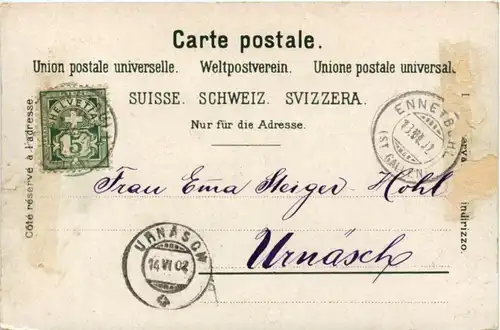 Carte postale.
Union postale universelle. Weltpostverein. Unione postale universale
SUISSE. SCHWEIZ. SVIZZERA.
Nur für die Adresse.
Côté réservé à l'adresse.
indirizzo.
HELVETIA
5
ENNETBÜHL
(ST. GAL
Frau Ema Steiger-Hohl
Urnäsch
URNÄSCH
14 VI 02